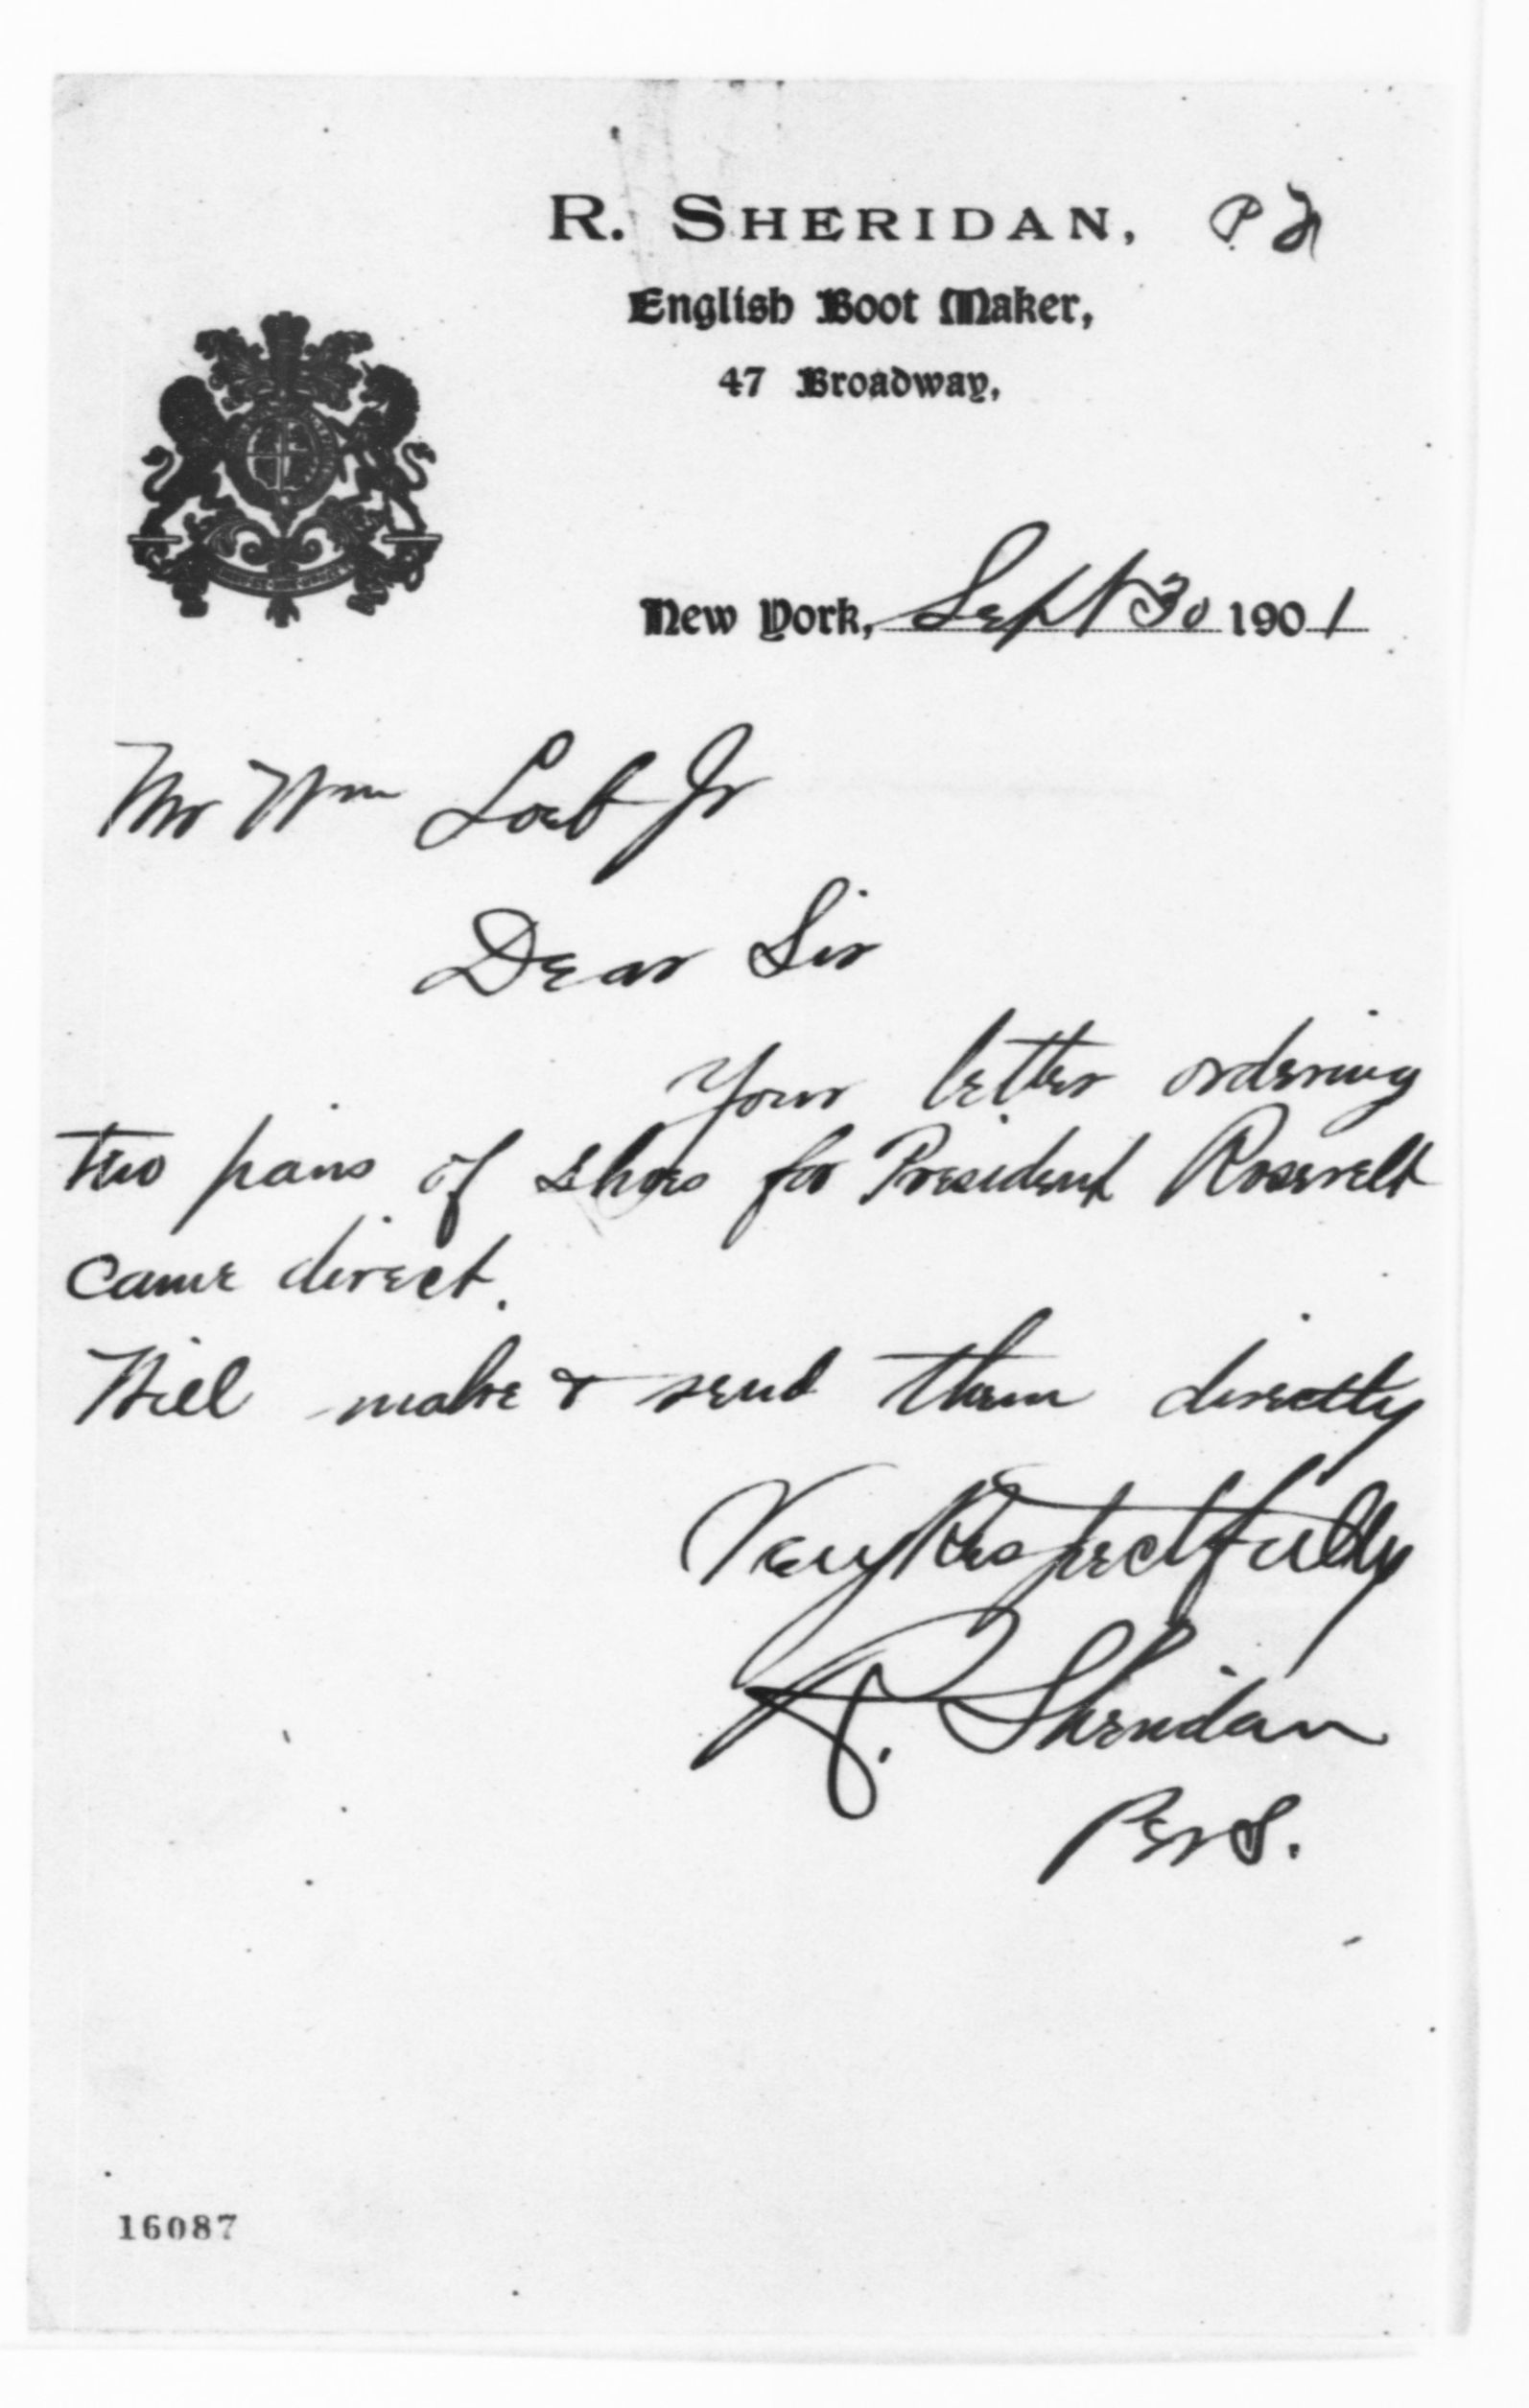 R. SHERIDAN, P F
English Boot Maker,
47 Broadway,
New York, Sept 30 1901
Mr Wm Loeb Jr
Dear Sir
Your letter ordering
two pairs of shoes for President Roosevelt
came direct.
Will make & send them directly
Very Respectfully
R. Sheridan
Per S.
16087